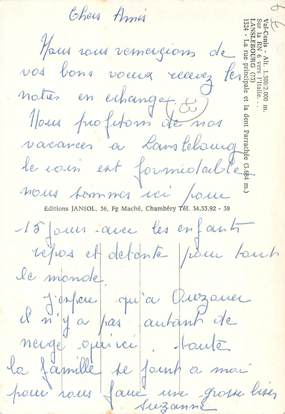 Chers Amis
Nous vous remercions de
vos bons voeux recevez les
notres en échange.
Nous profitons de nos
vacances a Lanslebourg
le coin est formidable
nous sommes ici pour
15 jours avec les enfants
repos et detente pour tout
le monde.
J'espère qu'a Ouzouer
il n'y a pas autant de
neige qu'ici. toute
la famille se joint a moi
pour vous faire une grosse bises
Suzanne
Editions JANSOL, 56, Fg Maché, Chambéry Tél. 34.53.92 - 38
Val-Cenis - Alt. 1.500/2.000 m.
Sur la RN 6 vers l'Italie...
LANSLEBOURG (73)
1324 - La rue principale et la dent Parrachée (3.684 m.)